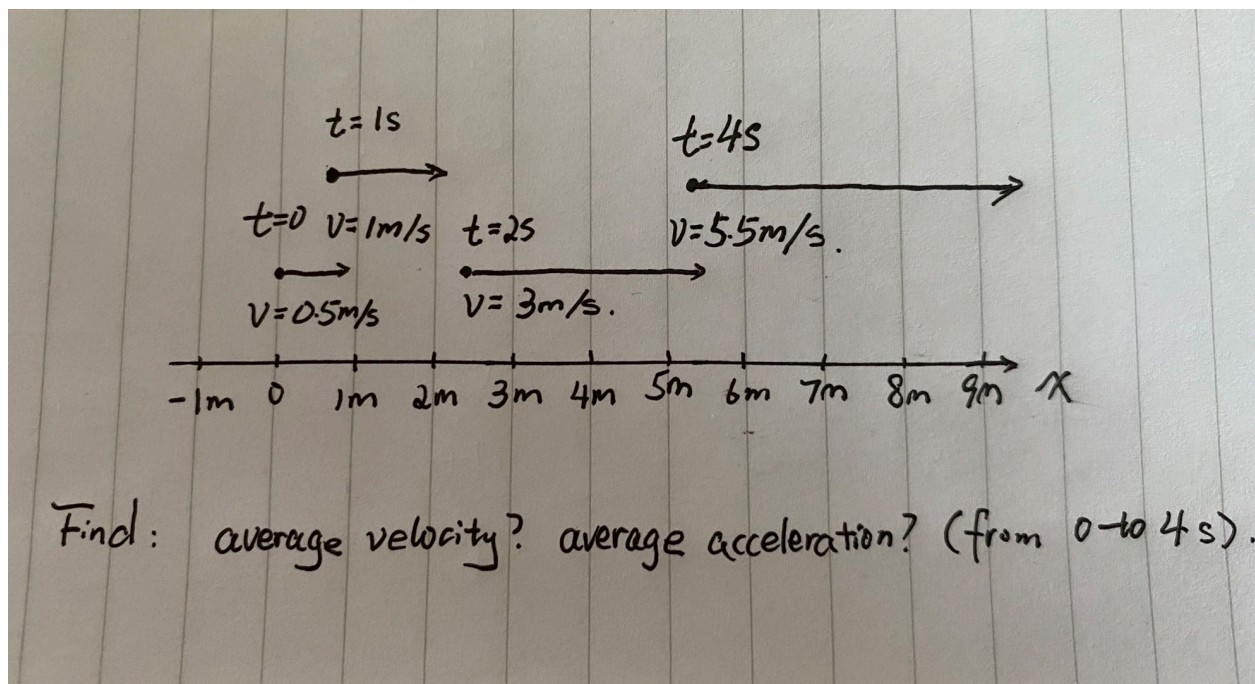 t=1s
t=4s
t=0 v=1m/s t=2s v=5.5m/s.
v=0.5m/s v= 3m/s.
-1m 0 1m 2m 3m 4m 5m 6m 7m 8m 9m x
Find: average velocity? average acceleration? (from 0 to 4s).